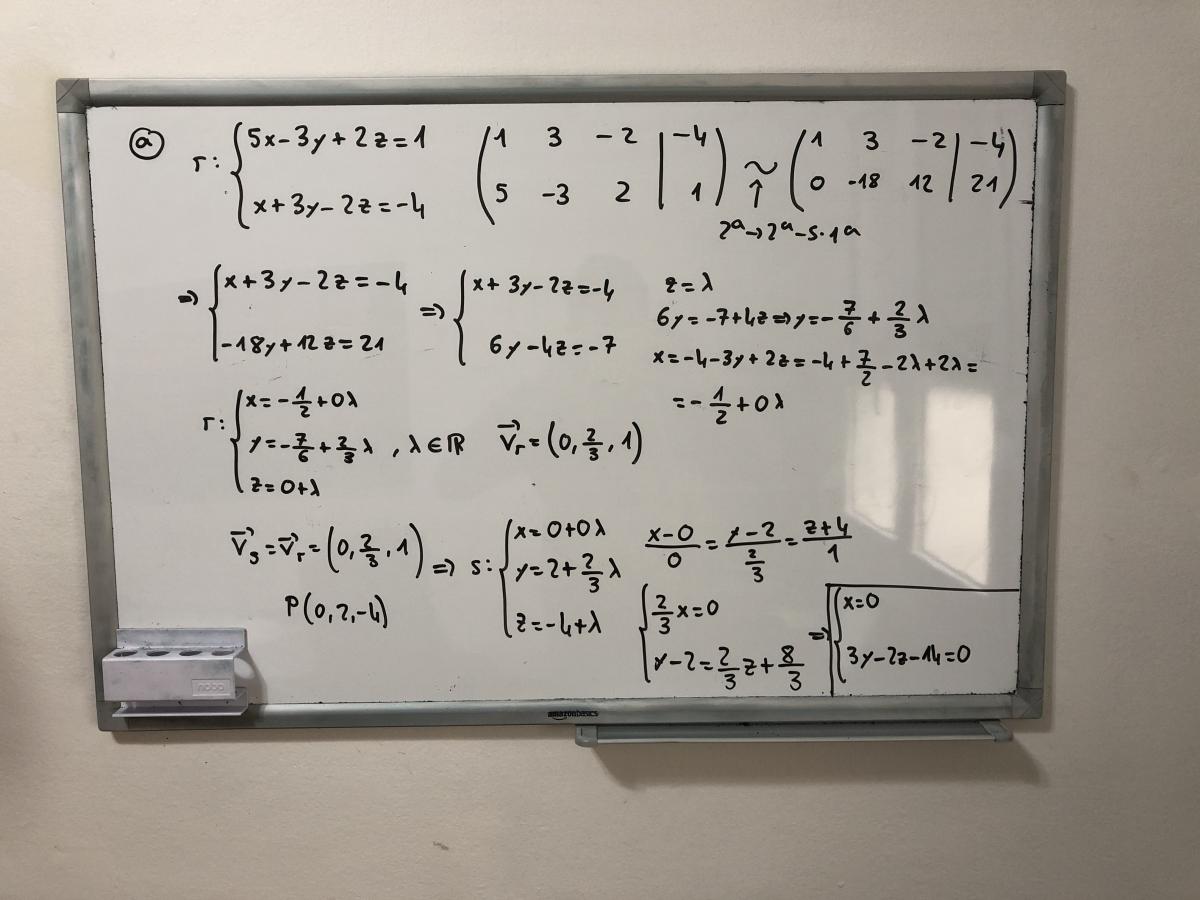 ⓐ r: { 5x-3y+2z=1
x+3y-2z=-4
( 1 3 -2 | -4
5 -3 2 | 1 ) ~ ( 1 3 -2 | -4
0 -18 12 | 21 )
↑
2ª→2ª-5·1ª
=> { x+3y-2z=-4
-18y+12z=21
=> { x+3y-2z=-4
6y-4z=-7
z=λ
6y=-7+4z=>y=-7/6+2/3 λ
x=-4-3y+2z=-4+7/2-2λ+2λ=
=-1/2+0λ
r: { x=-1/2+0λ
y=-7/6+2/3 λ , λ∈ℝ
z=0+λ
v⃗r=(0, 2/3, 1)
v⃗s=v⃗r=(0, 2/3, 1) => s: { x=0+0λ
y=2+2/3 λ
z=-4+λ
P(0,2,-4)
(x-0)/0=(y-2)/(2/3)=(z+4)/1
{ 2/3 x=0
y-2=2/3 z+8/3
=> { x=0
3y-2z-14=0
nobo
amazonbasics